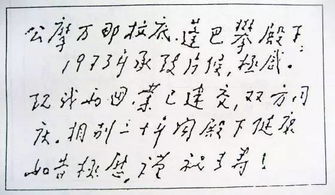 公摩万那拉底.蓬巴攀殿下:
1973年承致问候,极感。
现我两国业已建交,双方同
庆。相别二十年闻殿下健康
如昔极慰,谨祝多寿!